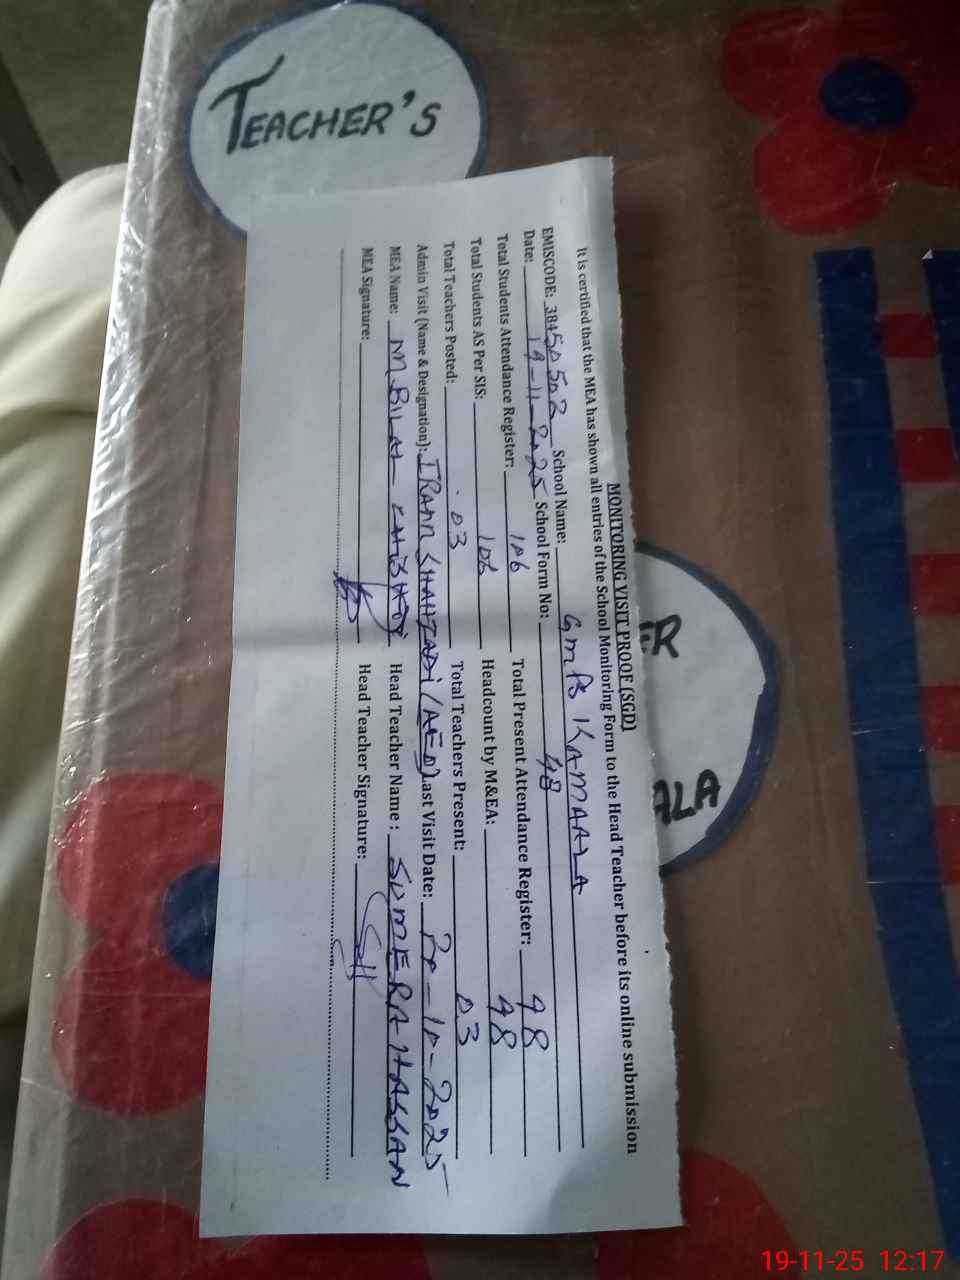 TEACHER'S
ER
ALA
MONITORING VISIT PROOF (SGD)
It is certified that the MEA has shown all entries of the School Monitoring Form to the Head Teacher before its online submission
EMISCODE: 38450502 School Name: GMPS KAMAALA
Date: 19-11-2025 School Form No: 48
Total Students Attendance Register: 106 Total Present Attendance Register: 98
Total Students AS Per SIS: 106 Headcount by M&EA: 98
Total Teachers Posted: 03 Total Teachers Present: 03
Admin Visit (Name & Designation): SHAHZADI (AEO) Last Visit Date: -10-2025
MEA Name: M BILAL Head Teacher Name: SUMERA HASSAN
MEA Signature: Head Teacher Signature:
19-11-25 12:17